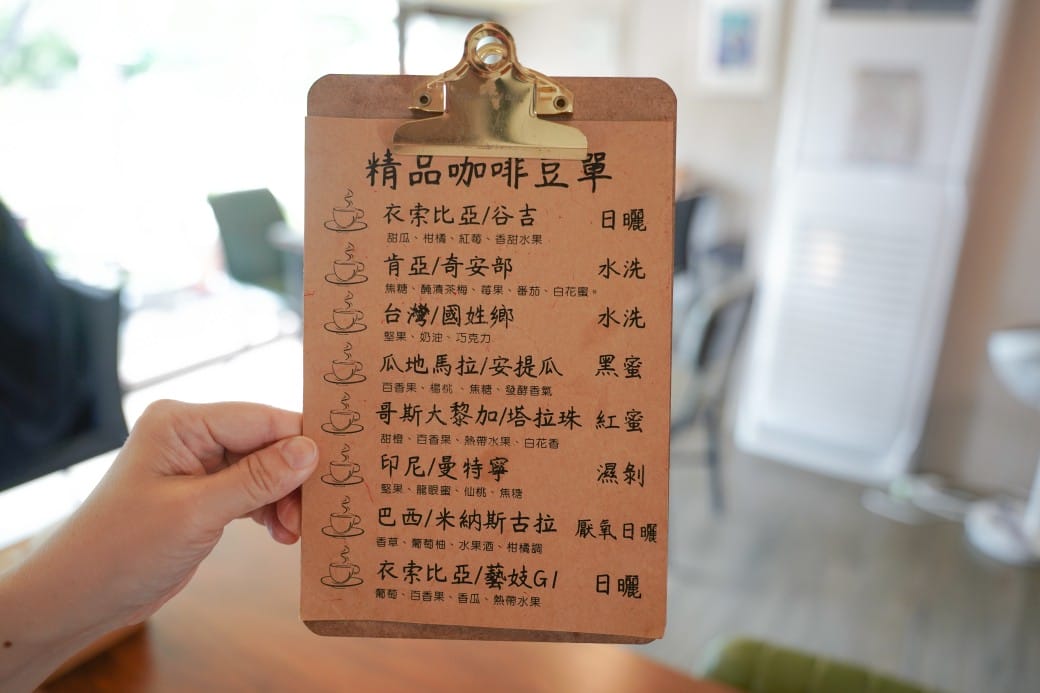 精品咖啡豆單
衣索比亞/谷吉 日曬
甜瓜、柑橘、紅莓、香甜水果
肯亞/奇安部 水洗
焦糖、醃漬茶梅、莓果、番茄、白花蜜。
台灣/國姓鄉 水洗
堅果、奶油、巧克力
瓜地馬拉/安提瓜 黑蜜
百香果、楊桃、焦糖、發酵香氣
哥斯大黎加/塔拉珠 紅蜜
甜橙、百香果、熱帶水果、白花香
印尼/曼特寧 濕剝
堅果、龍眼蜜、仙桃、焦糖
巴西/米納斯古拉 厭氧日曬
香草、葡萄柚、水果酒、柑橘調
衣索比亞/藝妓G1 日曬
葡萄、百香果、香瓜、熱帶水果